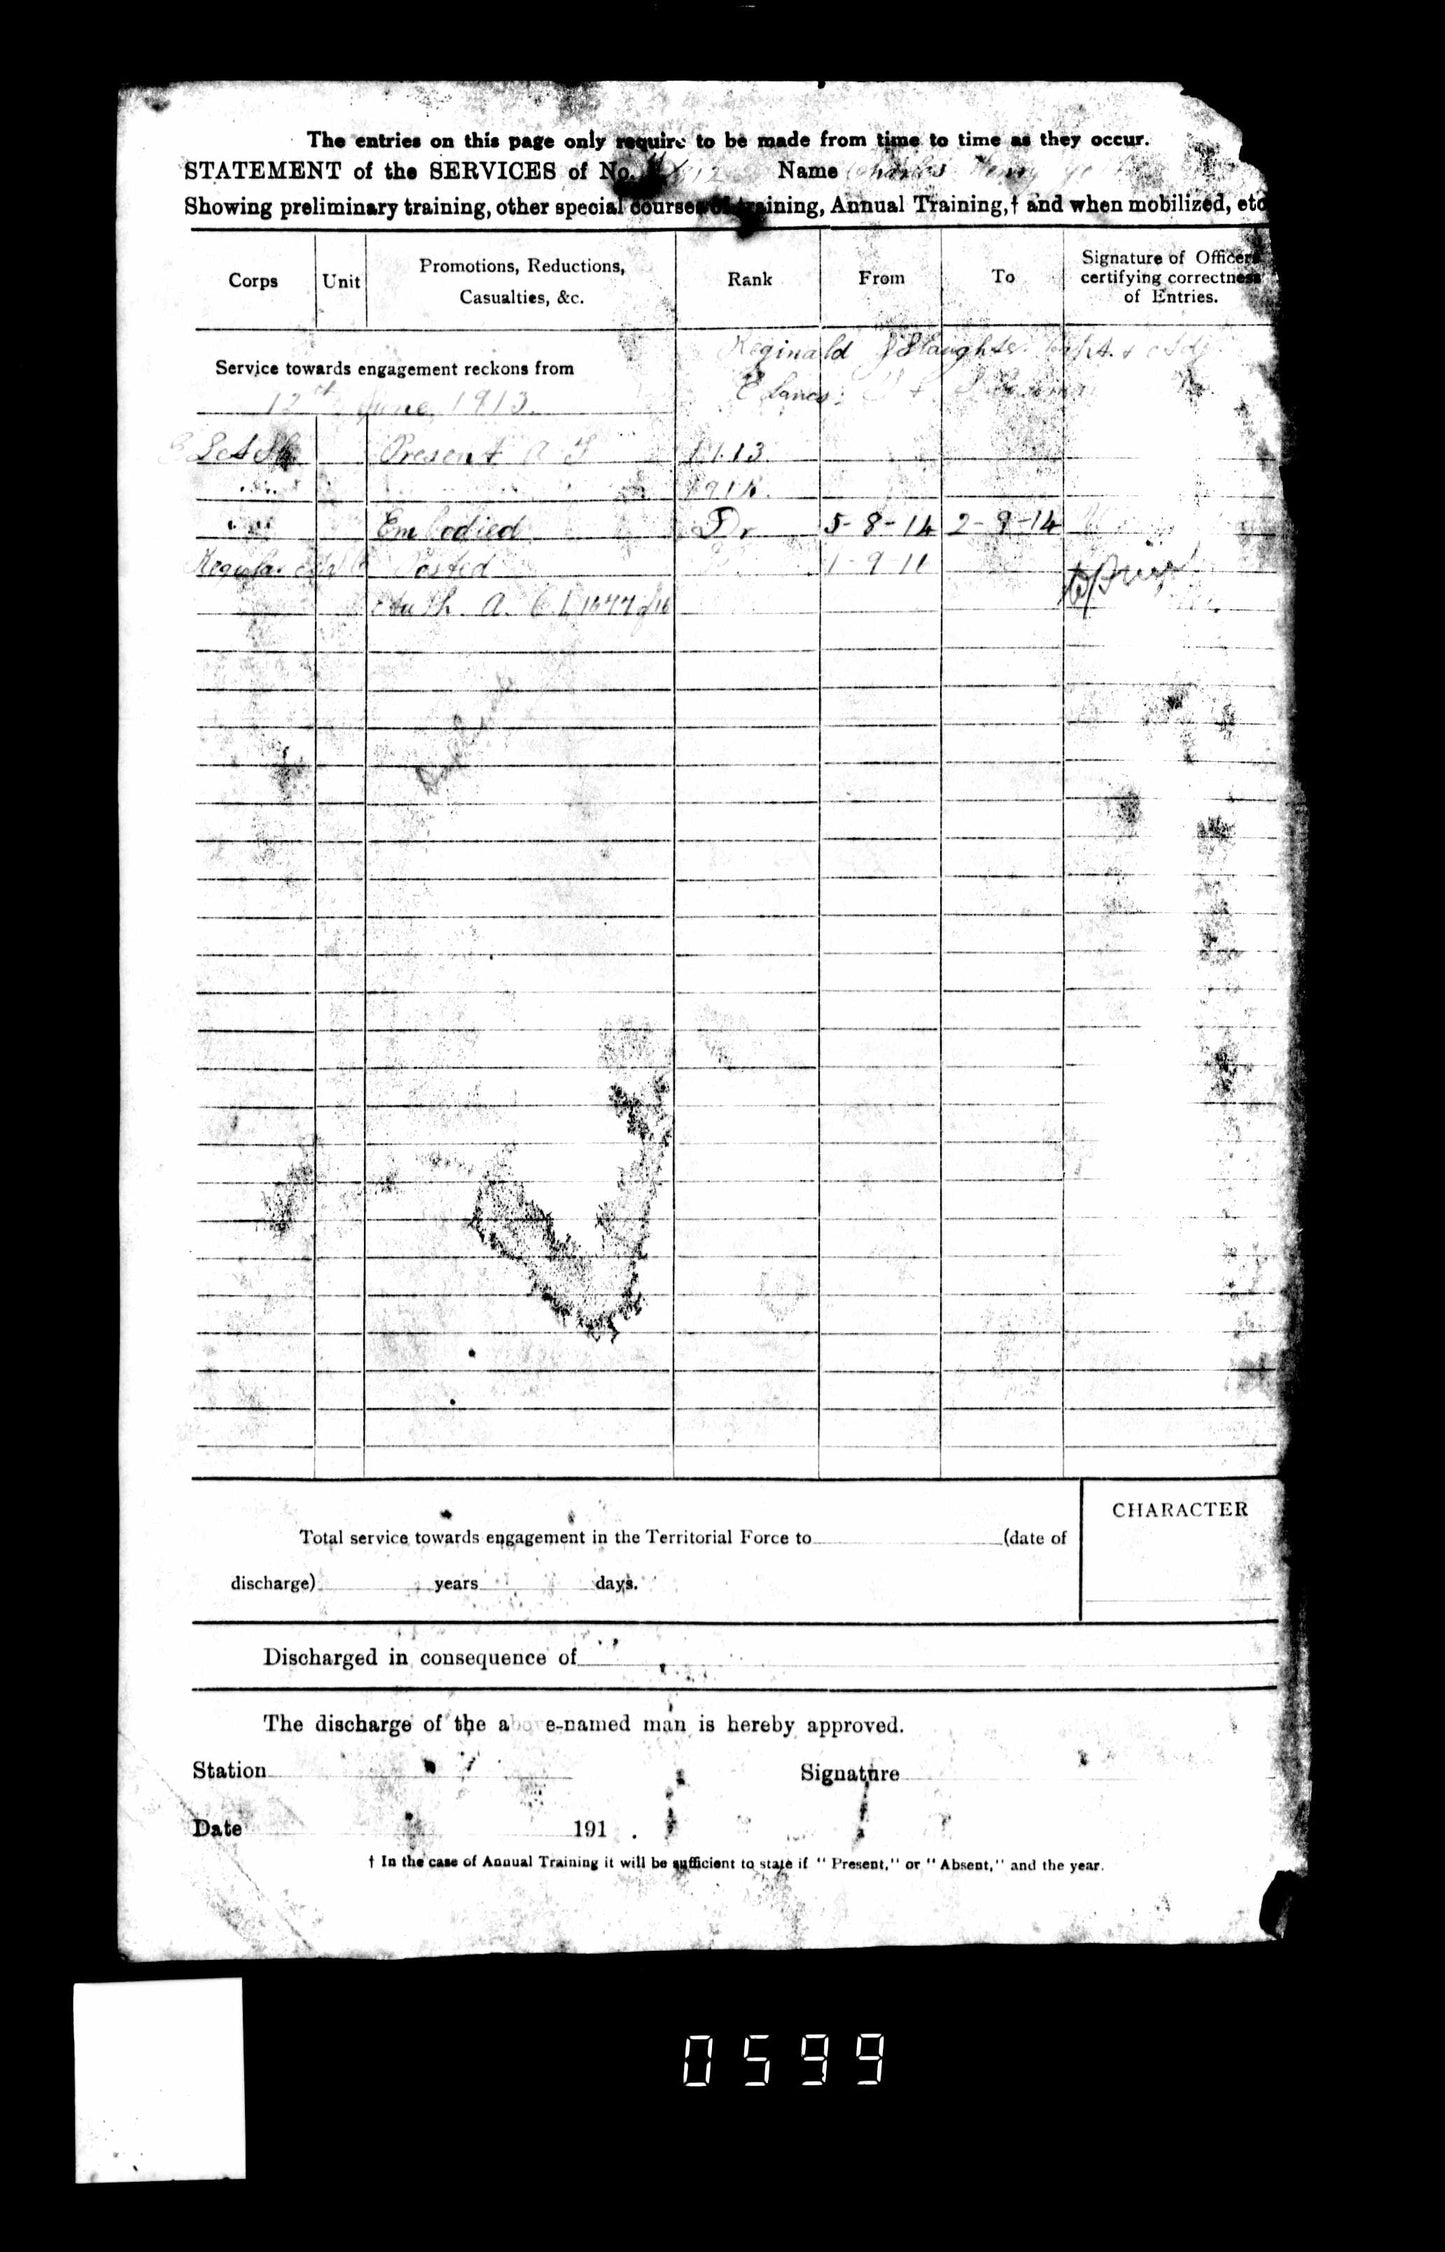 The entries on this page only require to be made from time to time as they occur.
STATEMENT of the SERVICES of No. Name Charles Henry
Showing preliminary training, other special courses of training, Annual Training,† and when mobilized, etc
Corps Unit Promotions, Reductions, Casualties, &c. Rank From To Signature of Officers certifying correctness of Entries.
Reginald Slaughter Capt. & Adj.
Service towards engagement reckons from
E Lancs
12th June 1913
Present 1913
191
Embodied Dr 5-8-14 2-9-14
Regular Posted 1-9-1
Auth. A. C. I. 1677 of 16
Duplicate
Total service towards engagement in the Territorial Force to (date of
CHARACTER
discharge) years days.
Discharged in consequence of
The discharge of the above-named man is hereby approved.
Station Signature
Date 191 .
† In the case of Annual Training it will be sufficient to state if "Present," or "Absent," and the year.
0599